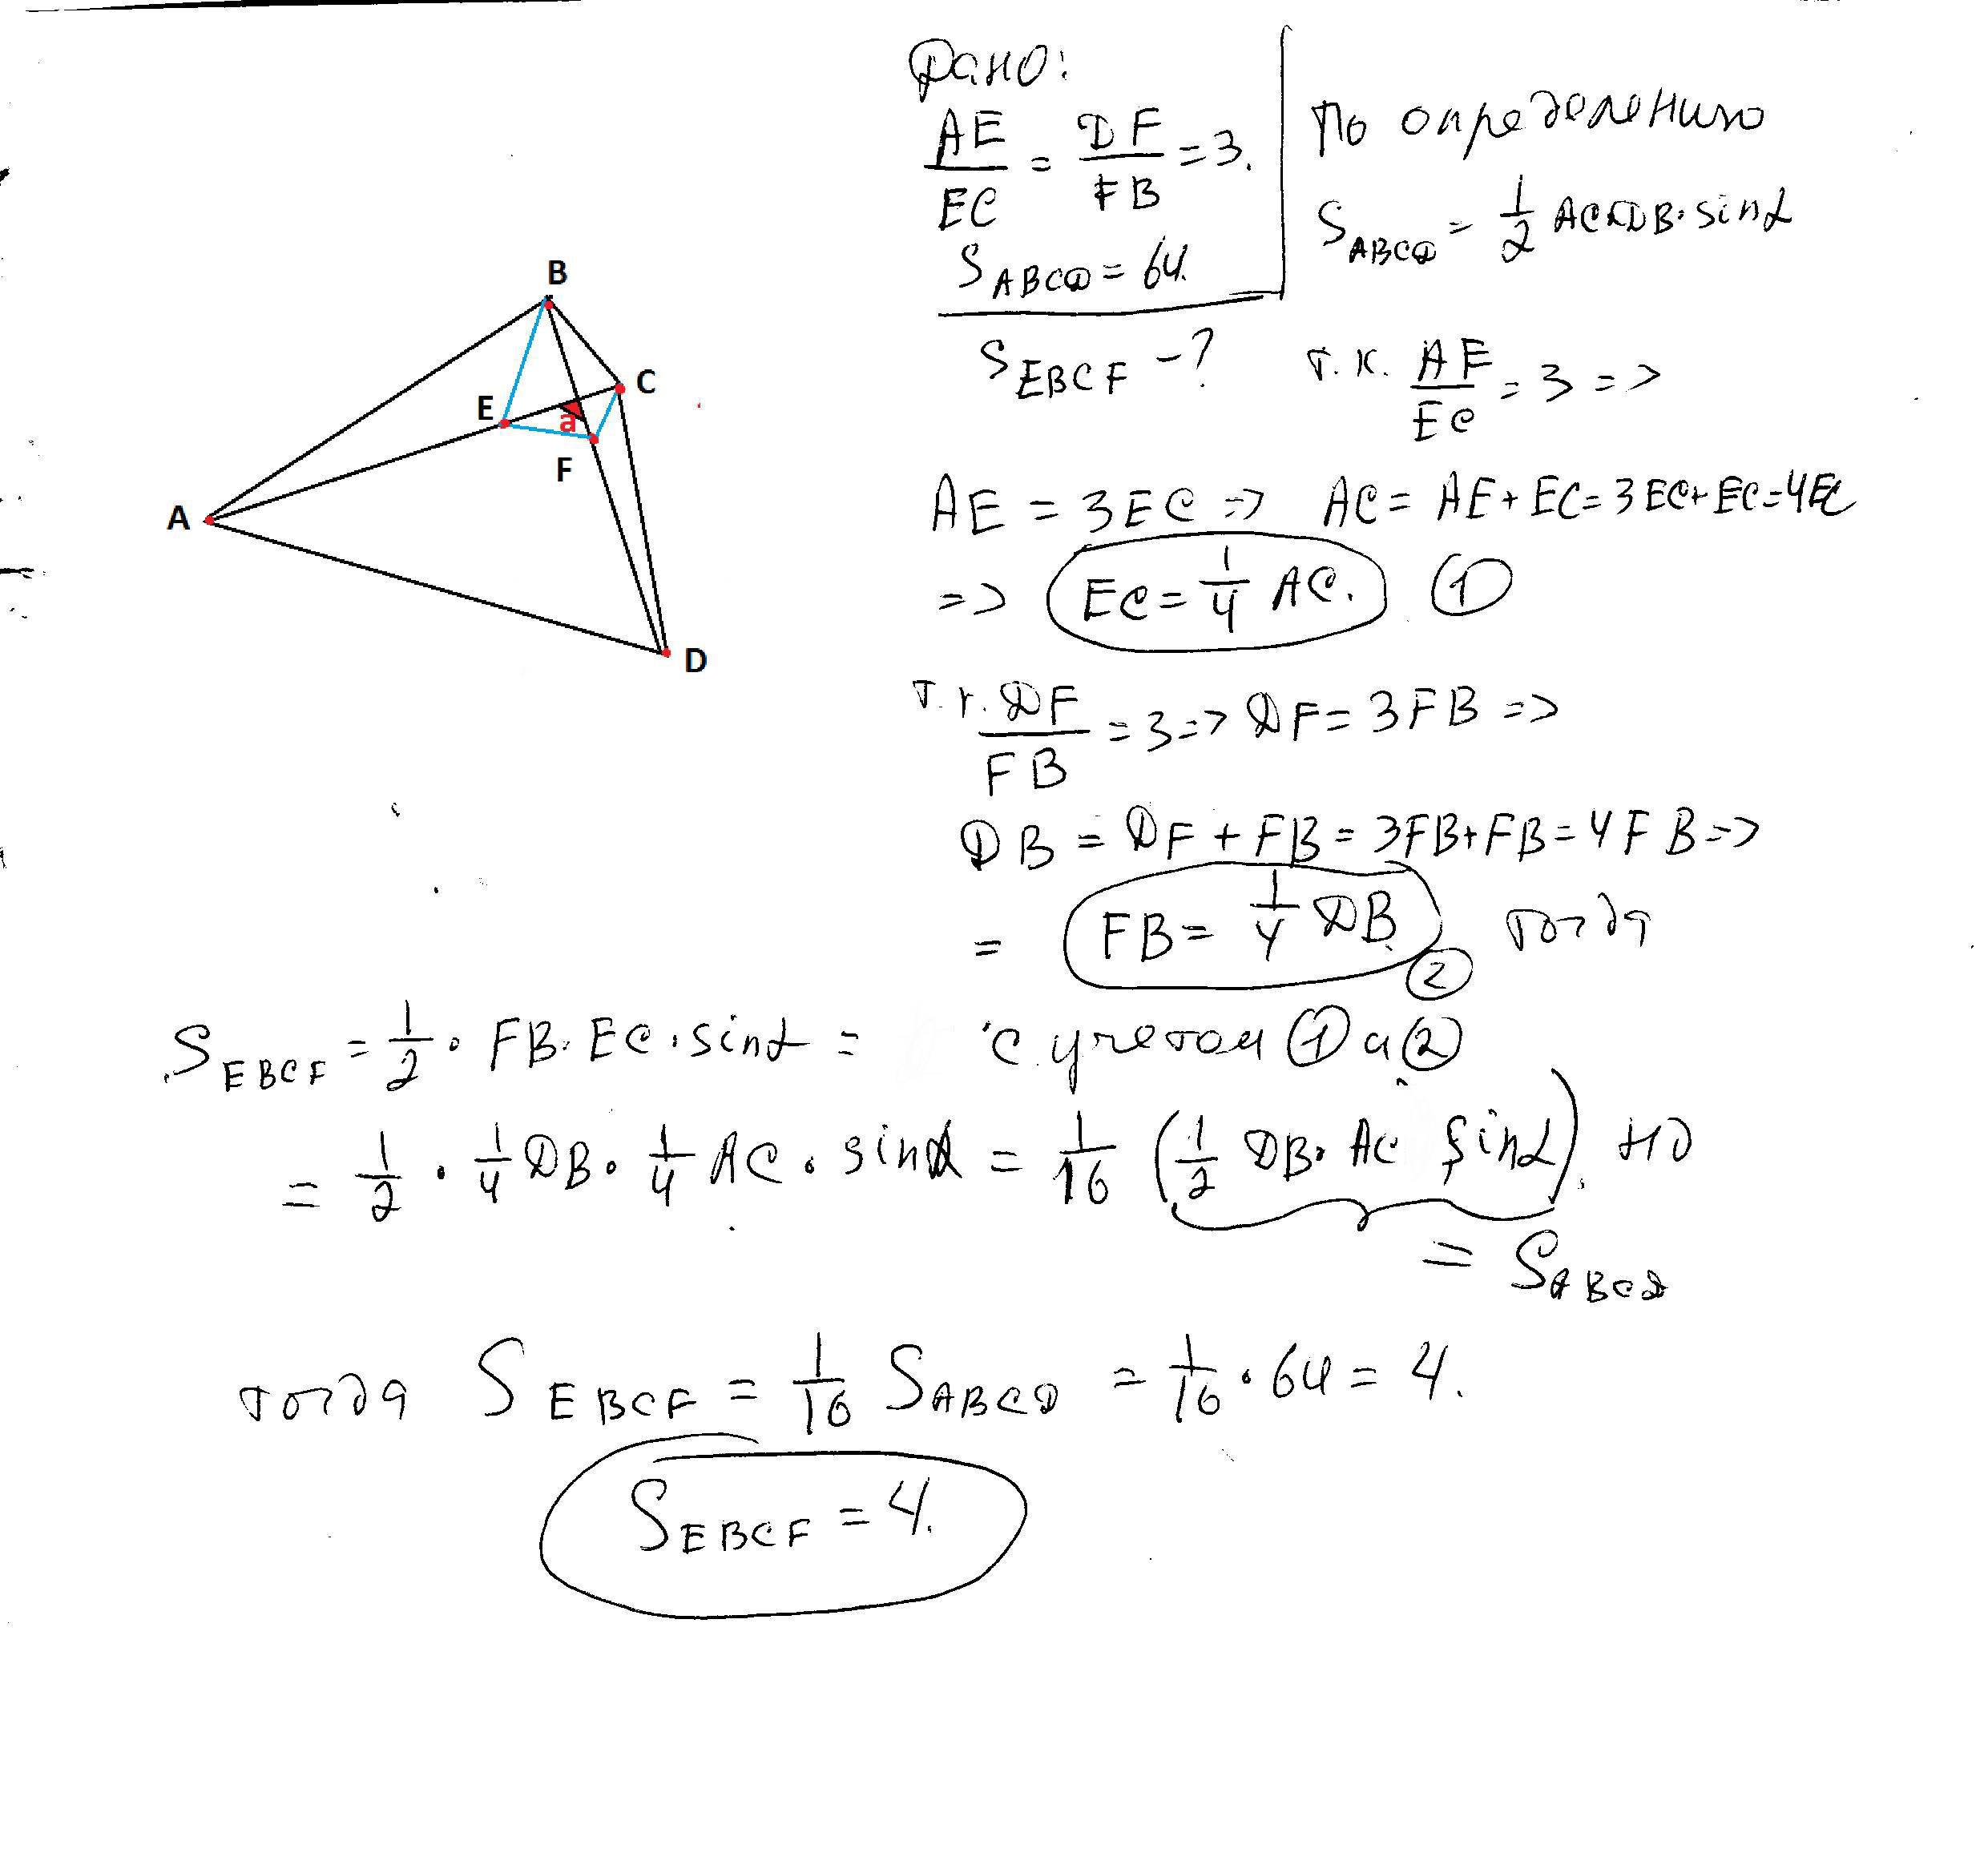 Дано:
AE/EC = DF/FB = 3.
S ABCD = 64.
S EBCF - ?
По определению
S ABCD = 1/2 AC·DB·sinα
т.к. AE/EC = 3 =>
AE = 3EC => AC = AE + EC = 3EC + EC = 4EC
=> EC = 1/4 AC. ①
т.к. DF/FB = 3 => DF = 3FB =>
DB = DF + FB = 3FB + FB = 4FB =>
= FB = 1/4 DB. ② тогда
B
C
E
a
F
A
D
S EBCF = 1/2 · FB · EC · sinα = с учетом ① и ②
= 1/2 · 1/4 DB · 1/4 AC · sinα = 1/16 (1/2 DB · AC sinα). но
= S ABCD
тогда S EBCF = 1/16 S ABCD = 1/16 · 64 = 4.
S EBCF = 4.